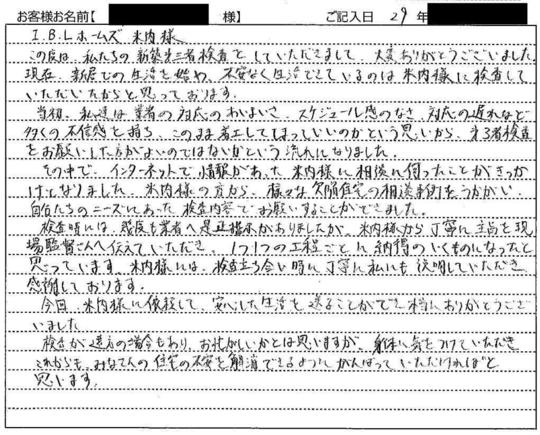 お客様お名前【 様】 ご記入日 29 年
I.B.Lホームズ 米内様
この度は、私たちの新築第三者検査をしていただきまして、大変ありがとうございました。
現在、新居での生活を始め、不安なく生活できているのは米内様に検査して
いただいたからと思っております。
当初、私達は業者の対応のわるいさ、スケジュール感のなさ、対応の遅れなど
多くの不信感を持ち、このまま着工してしまっていいのかという思いから、第3者検査
をお願いした方がよいのではないかという流れになりました。
その中で、インターネットで情報があった米内様に相談に伺ったことがきっか
けとなりました。米内様の方から、様々な欠陥住宅の相談事例をうかがい、
自分たちのニーズにあった検査内容でお願いすることができました。
検査時には、幾度も業者へ是正指示がありましたが、米内様から丁寧に主旨を現
場監督さんへ伝えていただき、1つ1つの工程ごとに納得のいくものになったと
思っています。米内様には、検査立ち会い時に丁寧に私にも説明していただき、
感謝しております。
今回、米内様に依頼して、安心した生活を送ることができ本当にありがとうござ
いました
検査が遠方の場合もあり、お忙しいかとは思いますが、お体に気をつけていただき
これからも、みなさんの住宅の不安を解消できるようにがんばっていただければと
思います。